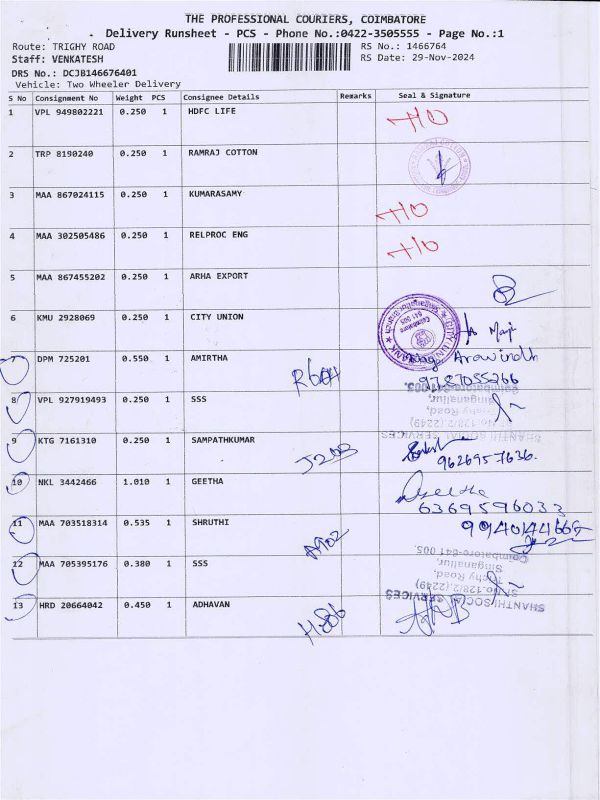 THE PROFESSIONAL COURIERS, COIMBATORE
Delivery Runsheet - PCS - Phone No.:0422-3505555 - Page No.:1
Route: TRIGHY ROAD
RS No.: 1466764
Staff: VENKATESH
RS Date: 29-Nov-2024
DRS No.: DCJB146676401
Vehicle: Two Wheeler Delivery
S No Consignment No Weight PCS Consignee Details Remarks Seal & Signature
1 VPL 949802221 0.250 1 HDFC LIFE
2 TRP 8190240 0.250 1 RAMRAJ COTTON
3 MAA 867024115 0.250 1 KUMARASAMY
4 MAA 302505486 0.250 1 RELPROC ENG
5 MAA 867455202 0.250 1 ARHA EXPORT
6 KMU 2928069 0.250 1 CITY UNION
DPM 725201 0.550 1 AMIRTHA Arawindh
9787055266
8 VPL 927919493 0.250 1 SSS
SHANTHI SOCIAL SERVICES
Sf No.128/2,(2249)
Trichy Road,
Singanallur,
Coimbatore-641 005.
9 KTG 7161310 0.250 1 SAMPATHKUMAR
9626957636.
10 NKL 3442466 1.010 1 GEETHA Geetha
6369596033
11 MAA 703518314 0.535 1 SHRUTHI A902
12 MAA 705395176 0.380 1 SSS
SHANTHI SOCIAL SERVICES
Sf No.128/2,(2249)
Trichy Road,
Singanallur,
Coimbatore-641 005.
13 HRD 20664042 0.450 1 ADHAVAN